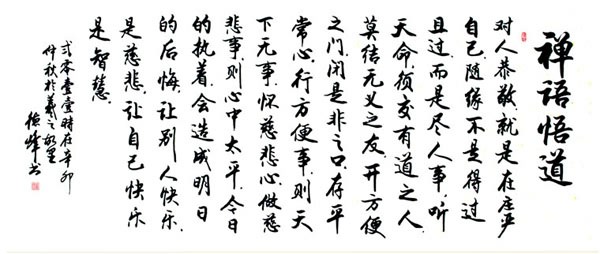 禅语悟道
对人恭敬就是在庄严
自己随缘不是得过
且过而是尽人事听
天命须交有道之人
莫结无义之友开方便
之门闭是非之口存平
常心行方便事则天
下无事怀慈悲心做慈
悲事则心中太平今日
的执着会造成明日
的后悔让别人快乐
是慈悲让自己快乐
是智慧
弍零壹壹時在辛卯
仲秋於羲之故里